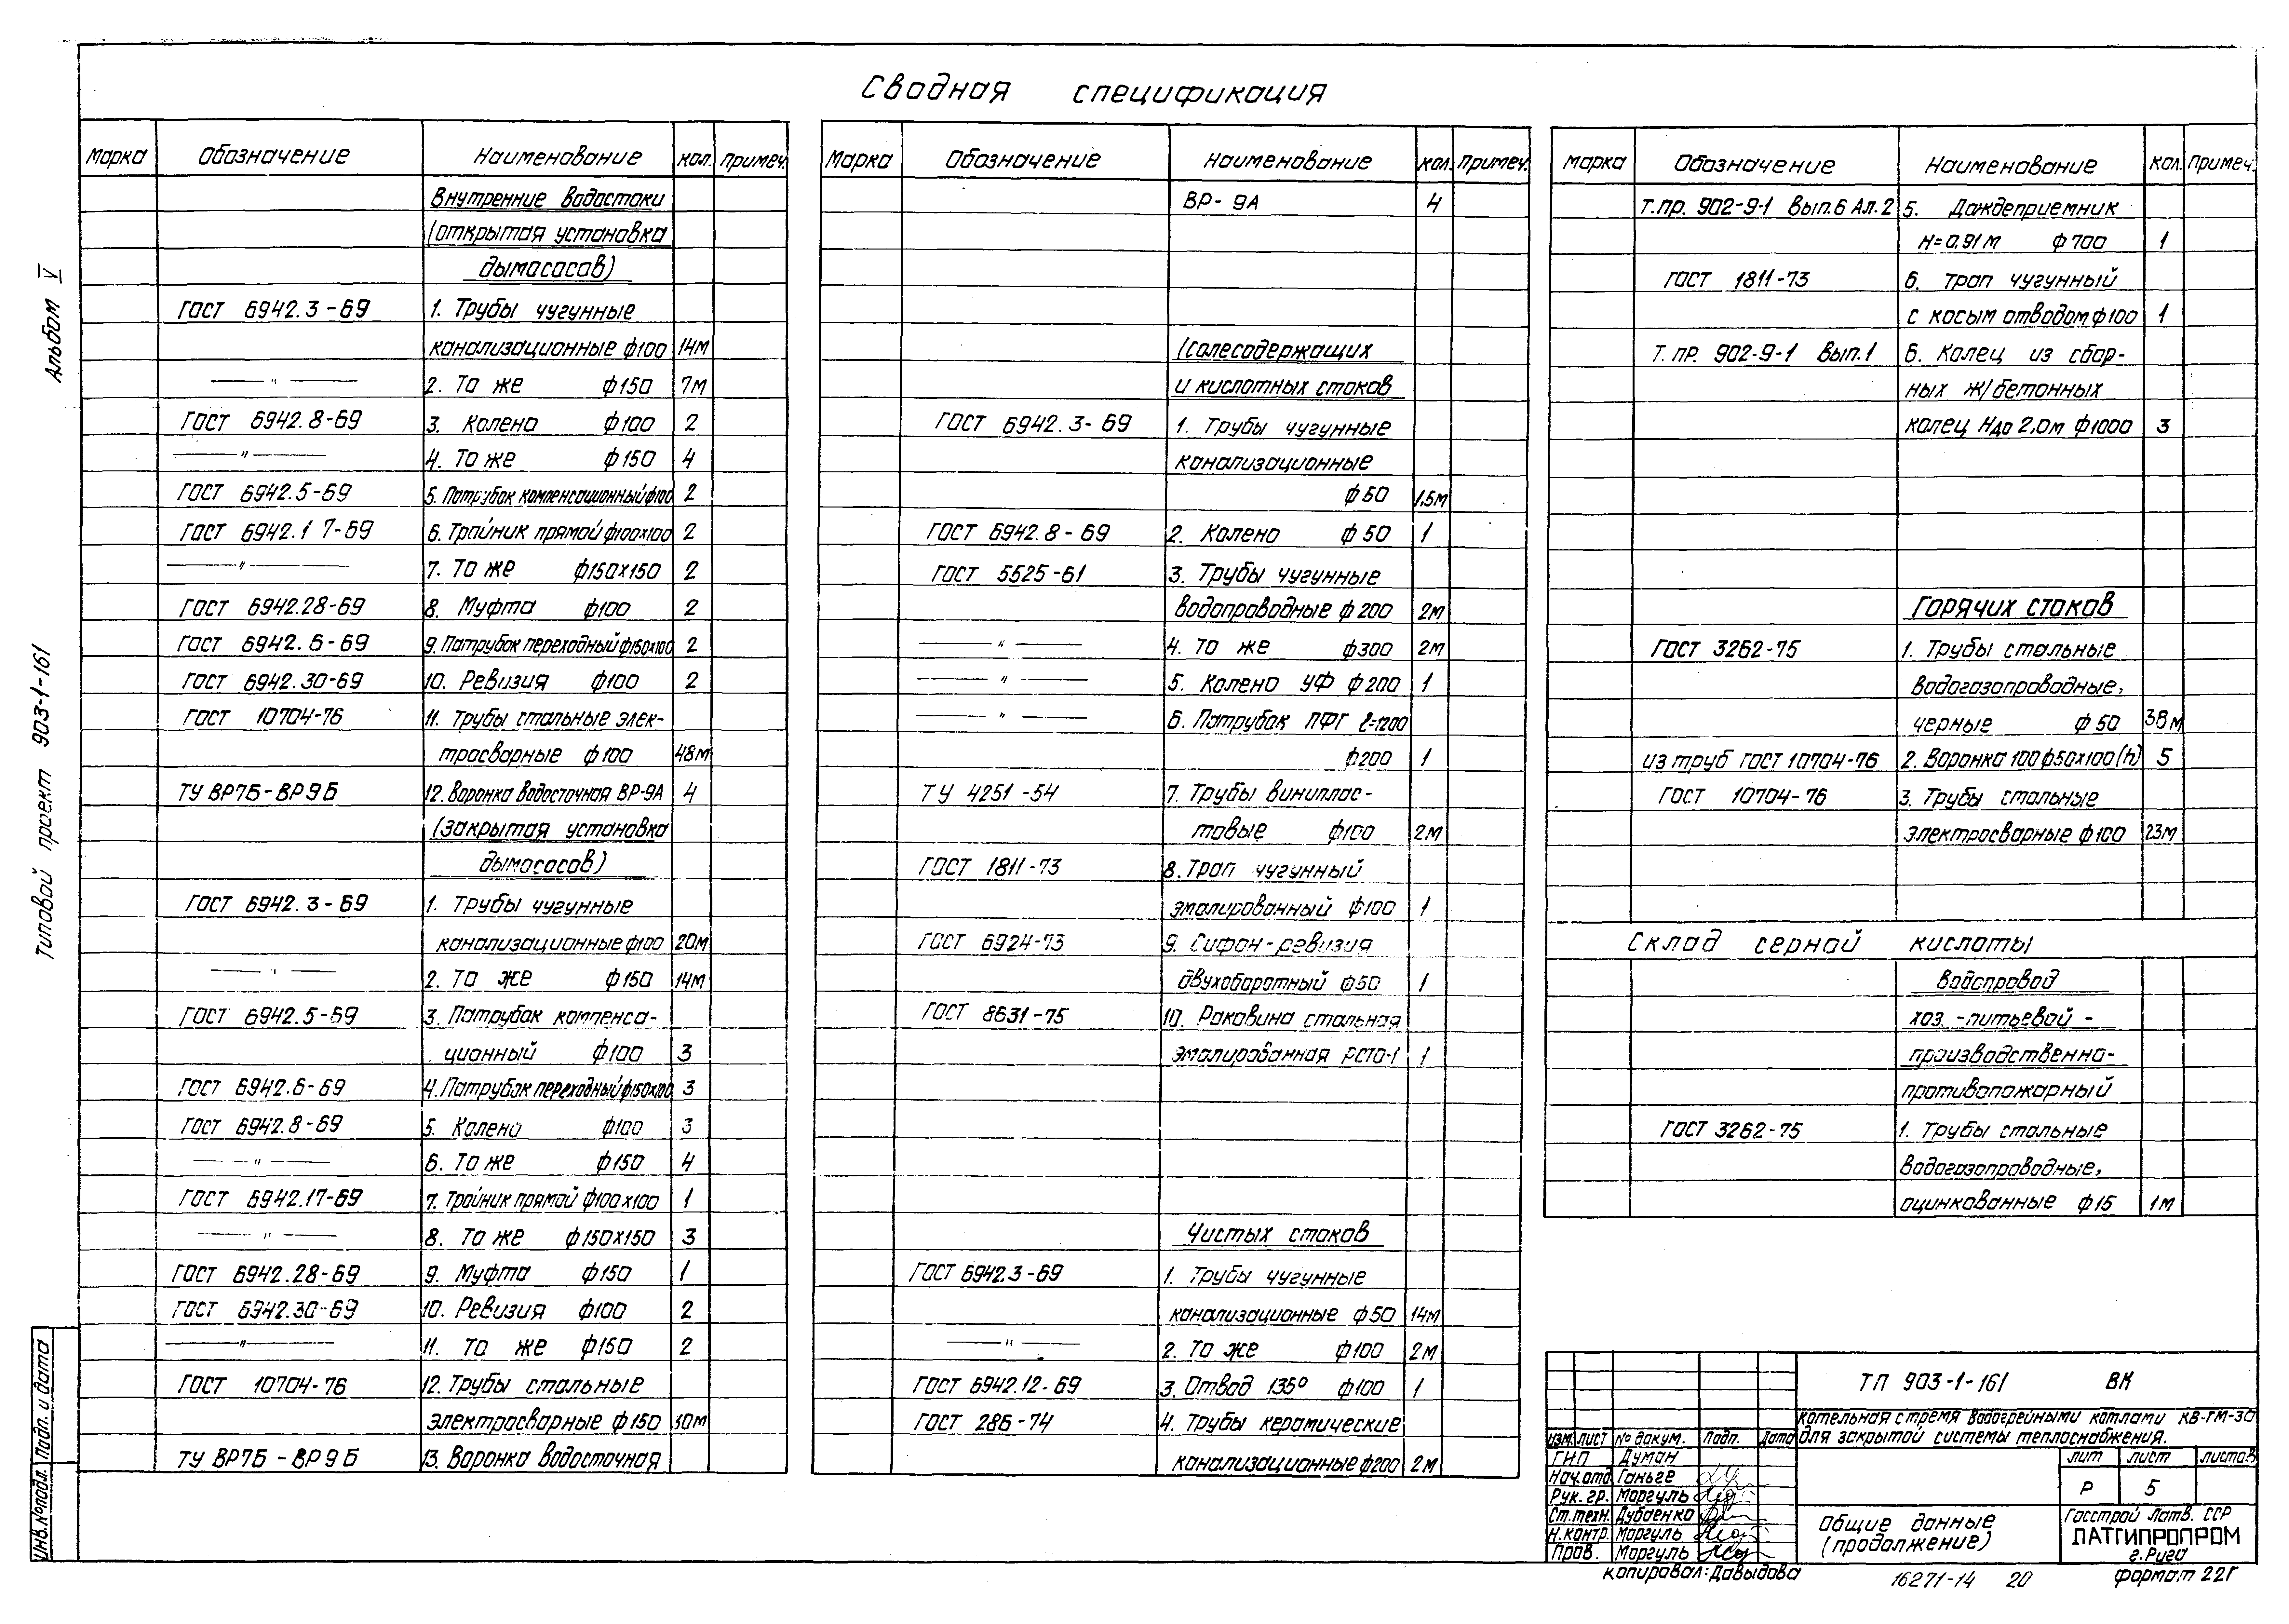 Сводная спецификация
Альбом V
Типовой проект 903-1-161
Марка Обозначение Наименование кол. примеч.
Внутренние водостоки
(открытая установка
дымососов)
ГОСТ 6942.3-69 1. Трубы чугунные
канализационные ф100 14м
—"— 2. То же ф150 7м
ГОСТ 6942.8-69 3. Колено ф100 2
—"— 4. То же ф150 4
ГОСТ 6942.5-69 5. Патрубок компенсационный ф100 2
ГОСТ 6942.17-69 6. Тройник прямой ф100х100 2
—"— 7. То же ф150х150 2
ГОСТ 6942.28-69 8. Муфта ф100 2
ГОСТ 6942.6-69 9. Патрубок переходный ф150х100 2
ГОСТ 6942.30-69 10. Ревизия ф100 2
ГОСТ 10704-76 11. Трубы стальные элек-
тросварные ф100 48м
ТУ ВР7Б-ВР9Б 12. Воронка водосточная ВР-9А 4
(закрытая установка
дымососов)
ГОСТ 6942.3-69 1. Трубы чугунные
канализационные ф100 20м
—"— 2. То же ф150 14м
ГОСТ 6942.5-69 3. Патрубок компенса-
ционный ф100 3
ГОСТ 6942.6-69 4. Патрубок переходный ф150х100 3
ГОСТ 6942.8-69 5. Колено ф100 3
—"— 6. То же ф150 4
ГОСТ 6942.17-69 7. Тройник прямой ф100х100 1
—"— 8. То же ф150х150 3
ГОСТ 6942.28-69 9. Муфта ф150 1
ГОСТ 6942.30-69 10. Ревизия ф100 2
—"— 11. То же ф150 2
ГОСТ 10704-76 12. Трубы стальные
электросварные ф150 30м
ТУ ВР7Б-ВР9Б 13. Воронка водосточная
Марка Обозначение Наименование кол. примеч.
ВР-9А 4
(солесодержащих
и кислотных стоков
ГОСТ 6942.3-69 1. Трубы чугунные
канализационные
ф50 1,5м
ГОСТ 6942.8-69 2. Колено ф50 1
ГОСТ 5525-61 3. Трубы чугунные
водопроводные ф200 2м
—"— 4. То же ф300 2м
—"— 5. Колено УФ ф200 1
—"— 6. Патрубок ПФГ ℓ=1200
ф200 1
ТУ 4251-54 7. Трубы виниплас-
товые ф100 2м
ГОСТ 1811-73 8. Трап чугунный
эмалированный ф100 1
ГОСТ 6924-73 9. Сифон-ревизия
двухоборотный ф50 1
ГОСТ 8631-75 10. Раковина стальная
эмалированная РСТО-1 1
Чистых стоков
ГОСТ 6942.3-69 1. Трубы чугунные
канализационные ф50 14м
—"— 2. То же ф100 2м
ГОСТ 6942.12-69 3. Отвод 135° ф100 1
ГОСТ 286-74 4. Трубы керамические
канализационные ф200 2м
марка Обозначение Наименование кол. примеч.
Т.пр. 902-9-1 Вып.6 Ал.2 5. Дождеприемник
Н=0,91м ф700 1
ГОСТ 1811-73 6. Трап чугунный
с косым отводом ф100 1
Т. пр. 902-9-1 Вып.1 6. Колец из сбор-
ных ж/бетонных
колец Ндо 2,0м ф1000 3
Горячих стоков
ГОСТ 3262-75 1. Трубы стальные
водогазопроводные,
черные ф50 38м
из труб ГОСТ 10704-76 2. Воронка 100ф50х100(h) 5
ГОСТ 10704-76 3. Трубы стальные
электросварные ф100 23м
Склад серной кислоты
Водопровод
хоз.-питьевой-
производственно-
противопожарный
ГОСТ 3262-75 1. Трубы стальные
водогазопроводные,
оцинкованные ф15 1м
ТП 903-1-161 ВК
Котельная с тремя водогрейными котлами КВ-ГМ-30
для закрытой системы теплоснабжения.
Изм. лист № докум. Подп. Дата
ГИП Думан
Нач.отд Ганьге
Рук. гр. Моргуль
Ст.техн. Дубаенко
Н.контр. Моргуль
Пров. Моргуль
лит лист листов
Р 5
Общие данные
(продолжение)
Госстрой Латв. ССР
ЛАТГИПРОПРОМ
г. Рига
копировал: Давыдова
16271-14 20
формат 22Г
Инв.№подл. Подп. и дата